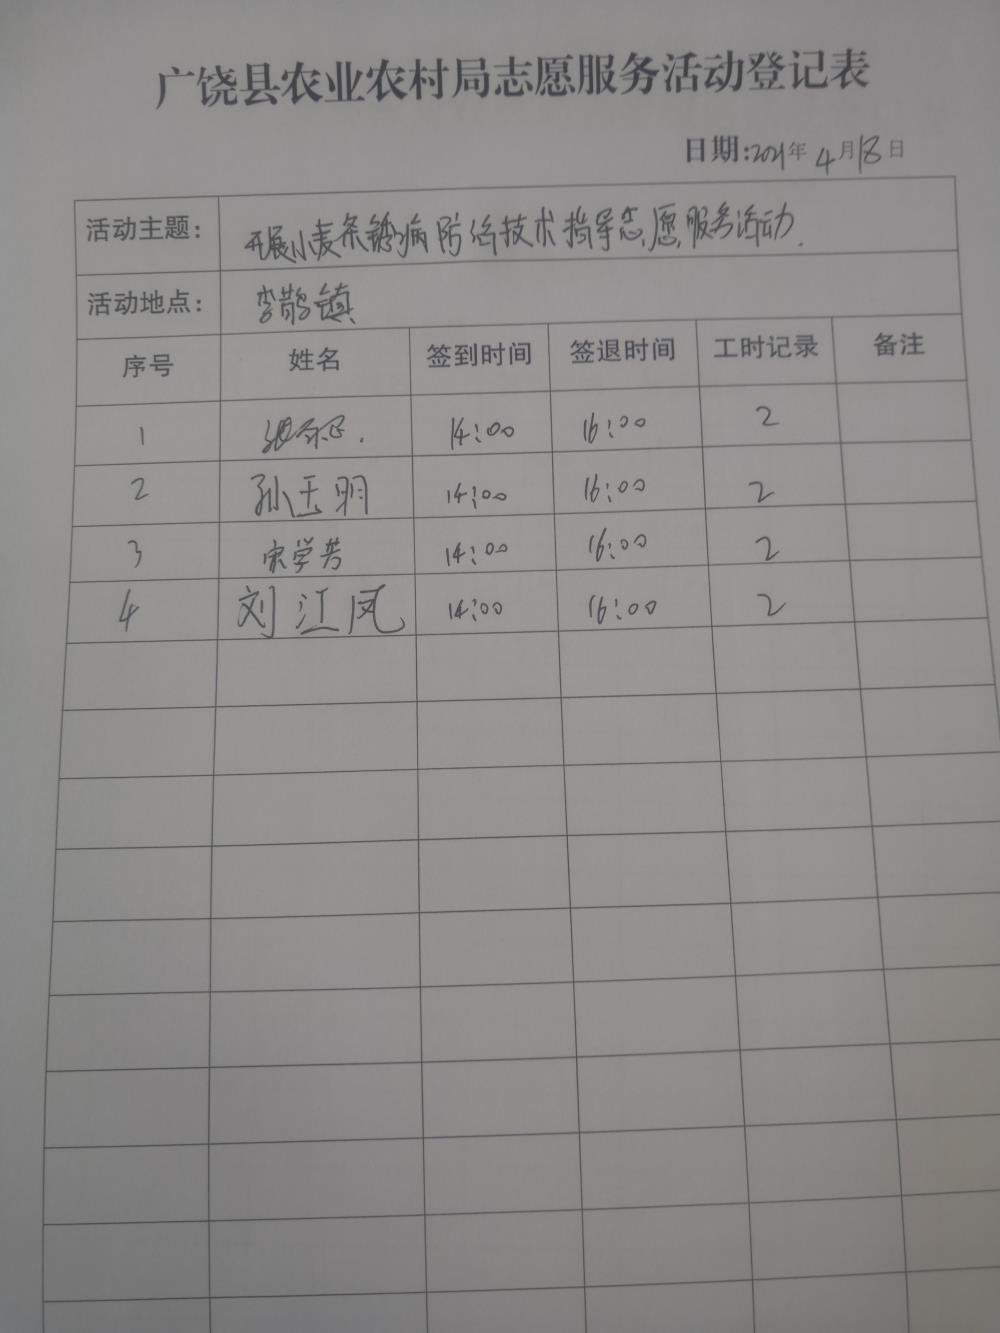 广饶县农业农村局志愿服务活动登记表
日期:2021年4月18日
活动主题: 开展小麦条锈病防治技术指导志愿服务活动.
活动地点: 李鹊镇
序号 姓名 签到时间 签退时间 工时记录 备注
1 14:00 16:00 2
2 孙玉明 14:00 16:00 2
3 宋学芳 14:00 16:00 2
4 刘江凤 14:00 16:00 2